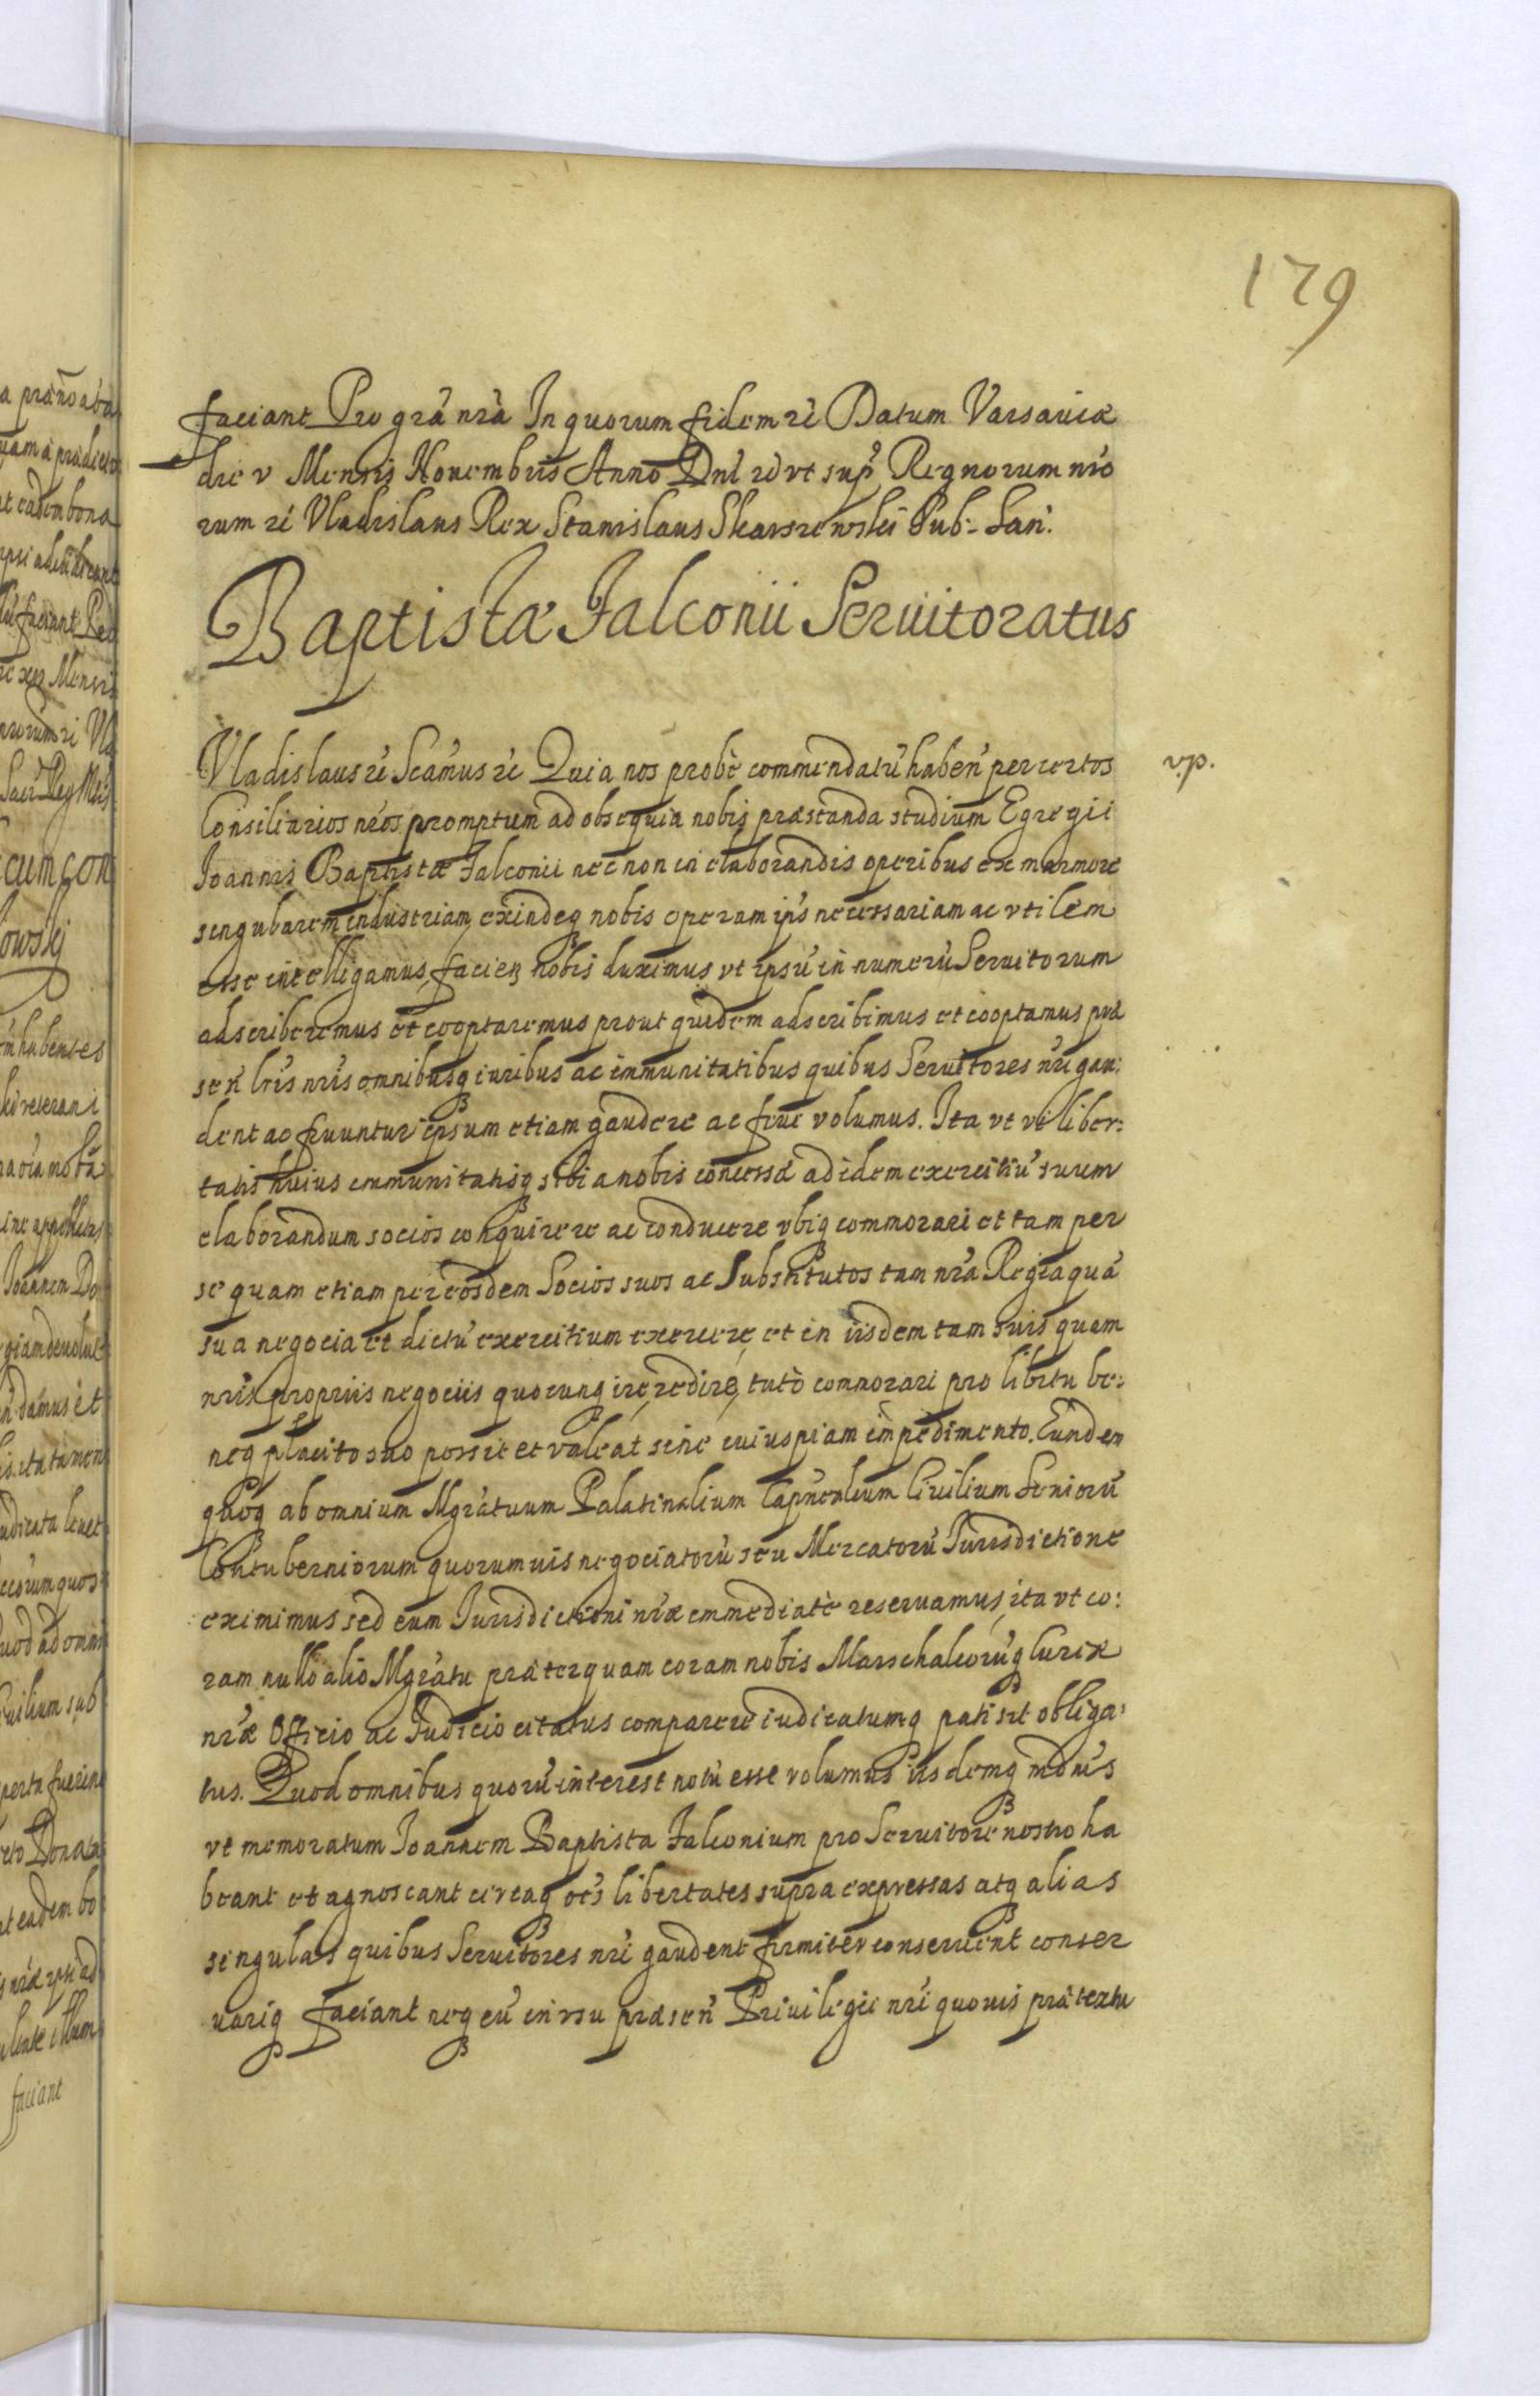 179
faciant Pro grã nrã In quorum fidem rc Datum Varsaviæ
die v Mensis Novembris Anno Dni rc vt supr Regnorum nro
rum rc Vladislaus Rex Stanislaus Skarszewski Sub. Can:
Baptistæ Falconii Servitoratus
Vladislaus rc Scamus rc Quia nos probè commendatũ haben per certos
Consiliarios nros promptum ad obsequia nobis præstanda studium Egregii
Joannis Baptistæ Falconii nec non in elaborandis operibus ex marmore
singularem industriam, exindeq nobis operam ips necessariam ac vtilem
esse intelligamus, facien nobis duximus vt ipsũ in numerũ Servitorum
adscriberemus et cooptaremus prout quidem adscribimus et cooptamus præ
sen lris nris omnibusq iuribus ac immunitatibus quibus Servitores nri gau:
dent ac fruuntur ipsum etiam gaudere ac frui volumus. Ita vt vi liber:
tatis huius immunitatisq sibi a nobis concessæ ad idem exercitiũ suum
elaborandum socios conquirere ac conducere vbiq commorari et tam per
se quam etiam per eosdem Socios suos ac Substitutos tam nra Regia quà
sua negocia et dictũ exercitium exercere, et in iisdem tam suis quam
nris propriis negociis quocunq ire, redire, tutò commorari pro libitu be:
neq placito suo possit et valeat sine cuiuspiam impedimento. Eundem
quoq ab omnium Mgratuum Palatinalium Capnealium Civilium Seniorũ
Contuberniorum quorumvis negociatorũ seu Mercatorũ Jurisdictione
eximimus sed eum Jurisdictioni nræ immediatè reservamus, ita vt co:
ram nullo alio Mgratu præterquam coram nobis Marschalcorũq Curiæ
nræ Officio ac Judicio citatus comparere iudicatumq pati sit obliga:
tus. Quod omnibus quorũ interest notũ esse volumus iisdemq mdnes
vt memoratum Joannem Baptista Falconium pro Servitore nostro ha
beant et agnoscant circaq oes libertates supra expressas atq alias
singulas quibus Servitores nri gaudent firmiter conservent conser
variq faciant neq eũ in vsu præsen Privilegii nri quovis prætextu